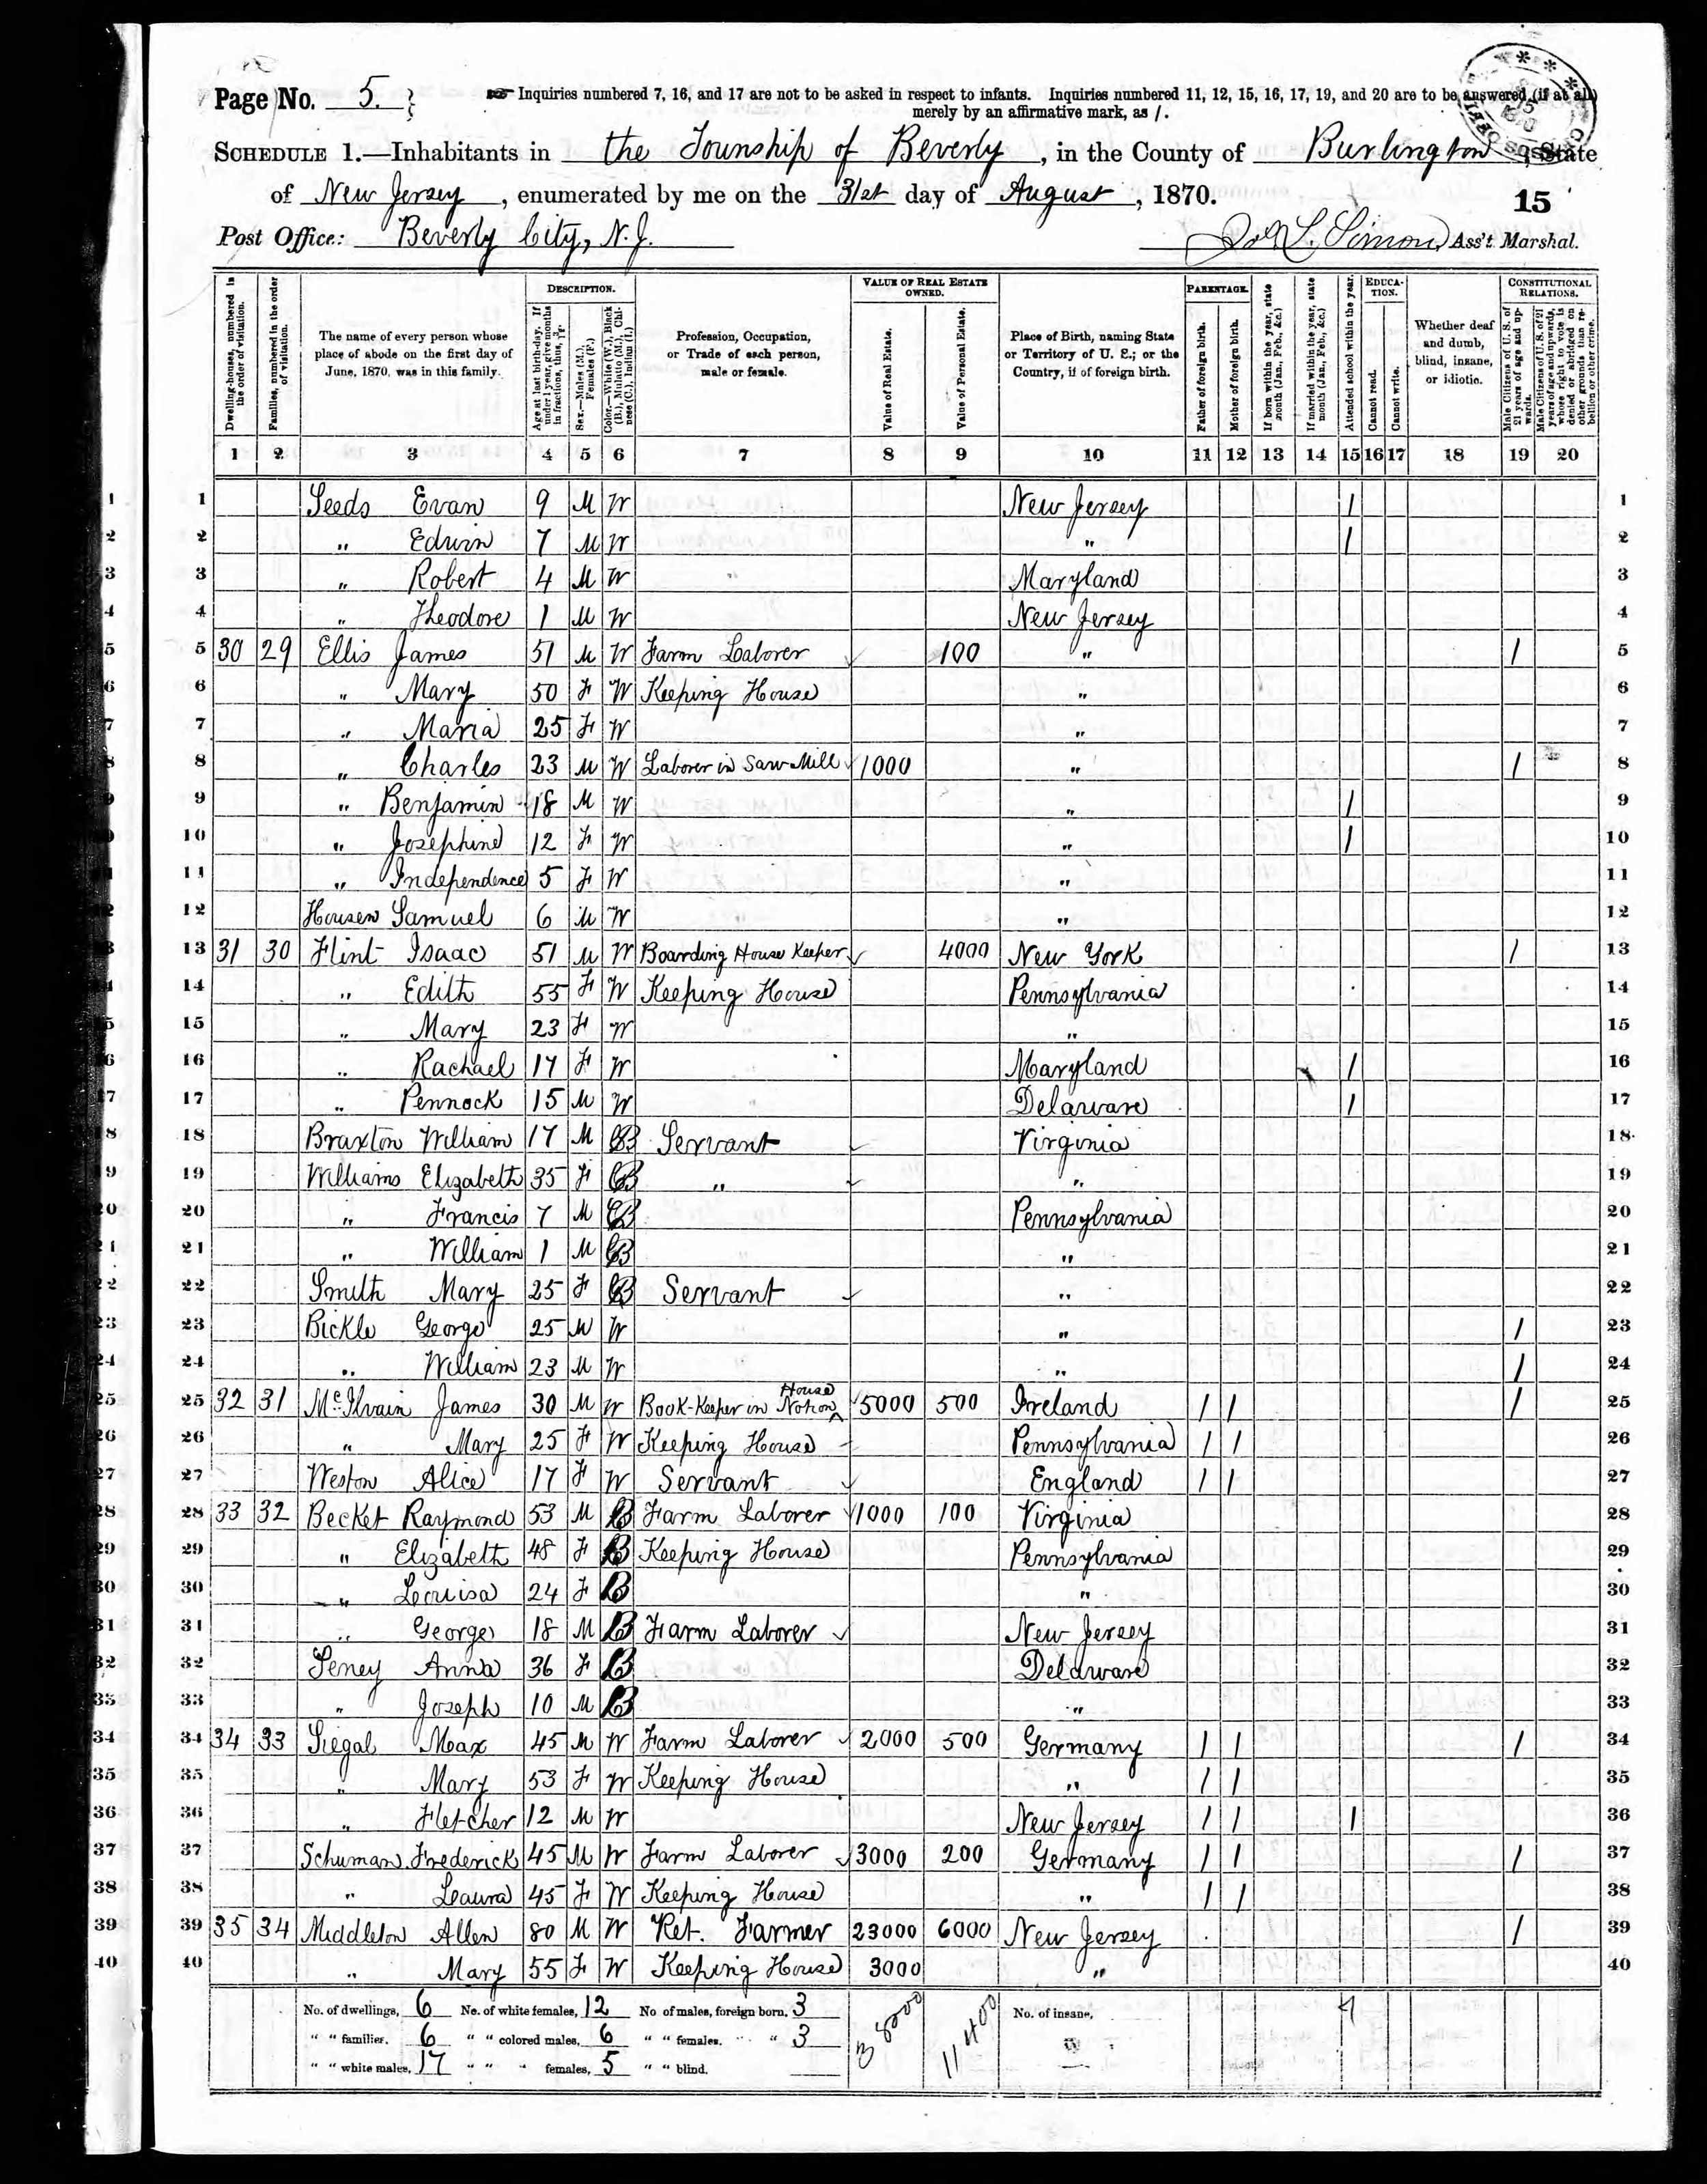 Page No. 5.
Inquiries numbered 7, 16, and 17 are not to be asked in respect to infants. Inquiries numbered 11, 12, 15, 16, 17, 19, and 20 are to be answered (if at all)
merely by an affirmative mark, as /.
SCHEDULE 1.—Inhabitants in the Township of Beverly, in the County of Burlington, State
of New Jersey, enumerated by me on the 31st day of August, 1870.
15
Post Office: Beverly City, N. J.
Simon, Ass't Marshal.
Dwelling-houses, numbered in the order of visitation.
Families, numbered in the order of visitation.
The name of every person whose place of abode on the first day of June, 1870, was in this family.
DESCRIPTION.
Age at last birth-day. If under 1 year, give months in fractions, thus, 3/12.
Sex.—Males (M.), Females (F.)
Color.—White (W.), Black (B.), Mulatto (M.), Chinese (C.), Indian (I.)
Profession, Occupation, or Trade of each person, male or female.
VALUE OF REAL ESTATE OWNED.
Value of Real Estate.
Value of Personal Estate.
Place of Birth, naming State or Territory of U. S.; or the Country, if of foreign birth.
PARENTAGE.
Father of foreign birth.
Mother of foreign birth.
If born within the year, state month (Jan., Feb., &c.)
If married within the year, state month (Jan., Feb., &c.)
Attended school within the year.
EDUCATION.
Cannot read.
Cannot write.
Whether deaf and dumb, blind, insane, or idiotic.
CONSTITUTIONAL RELATIONS.
Male Citizens of U. S. of 21 years of age and upwards.
Male Citizens of U. S. of 21 years of age and upwards, whose right to vote is denied or abridged on other grounds than rebellion or other crime.
1 2 3 4 5 6 7 8 9 10 11 12 13 14 15 16 17 18 19 20
1 Seeds Evan 9 M W New Jersey / 1
2 " Edwin 7 M W " / 2
3 " Robert 4 M W Maryland 3
4 " Theodore 1 M W New Jersey 4
5 30 29 Ellis James 51 M W Farm Laborer 100 " / 5
6 " Mary 50 F W Keeping House " 6
7 " Maria 25 F W " 7
8 " Charles 23 M W Laborer in Saw Mill 1000 " / 8
9 " Benjamin 18 M W " / 9
10 " Josephine 12 F W " / 10
11 " Independence 5 F W " 11
12 Housen Samuel 6 M W " 12
13 31 30 Flint Isaac 51 M W Boarding House Keeper 4000 New York / 13
14 " Edith 55 F W Keeping House Pennsylvania 14
15 " Mary 23 F W " 15
16 " Rachael 17 F W Maryland / 16
17 " Pennock 15 M W Delaware / 17
18 Braxton William 17 M B Servant Virginia 18
19 Williams Elizabeth 35 F B " " 19
20 " Francis 7 M B Pennsylvania 20
21 " William 1 M B " 21
22 Smith Mary 25 F B Servant " 22
23 Bickle George 25 M W " / 23
24 " William 23 M W " / 24
25 32 31 McIlvain James 30 M W Book-Keeper in Notion House 5000 500 Ireland / / / 25
26 " Mary 25 F W Keeping House Pennsylvania / / 26
27 Weston Alice 17 F W Servant England / / 27
28 33 32 Becket Raymond 53 M B Farm Laborer 1000 100 Virginia 28
29 " Elizabeth 48 F B Keeping House Pennsylvania 29
30 " Louisa 24 F B " 30
31 " George 18 M B Farm Laborer New Jersey 31
32 Seney Anna 36 F B Delaware 32
33 " Joseph 10 M B " 33
34 34 33 Siegal Max 45 M W Farm Laborer 2000 500 Germany / / / 34
35 " Mary 53 F W Keeping House " / / 35
36 " Fletcher 12 M W New Jersey / / / 36
37 Schuman Frederick 45 M W Farm Laborer 3000 200 Germany / / / 37
38 " Laura 45 F W Keeping House " / / 38
39 35 34 Middleton Allen 80 M W Ret. Farmer 23000 6000 New Jersey / 39
40 " Mary 55 F W Keeping House 3000 " 40
No. of dwellings, 6 No. of white females, 12 No of males, foreign born, 3 38000 11400 No. of insane, 7
" " families, 6 " " colored males, 6 " " females, " " 3
" " white males, 17 " " " females, 5 " " blind,